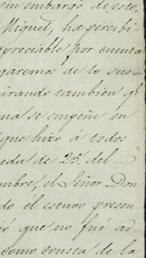 sin embargo de este,
Miguel, ha percibi
apreciable por cuenta
garemos de lo sus
irando tambien qe
na se empeñe en
que hizo á todos
eda de 25. del
mbre, el Señor Don
do él estuvo presen
ió que no fué ad
como consta de la